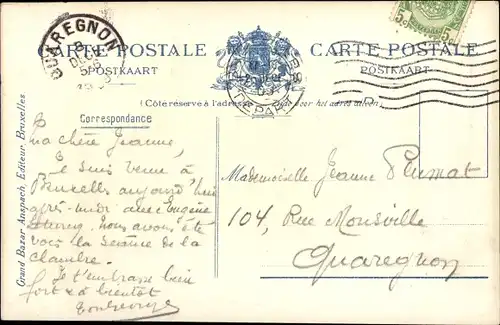 CARTE POSTALE
POSTKAART
CARTE POSTALE
POSTKAART
QUAREGNON
DEPART
5c
(Côté réservé à l'adresse)
Zijde voor het adres alleen)
Correspondance
Grand Bazar Anspach, Editeur, Bruxelles
Ma chère Jeanne,
Je suis venu à
Bruxelles aujourd'hui
après-midi avec Eugène
nous avons été
voir la séance de la
Chambre.
Je t'embrasse bien
fort & à bientôt
Mademoiselle Jeanne Plumat
104, Rue Monsville
Quaregnon